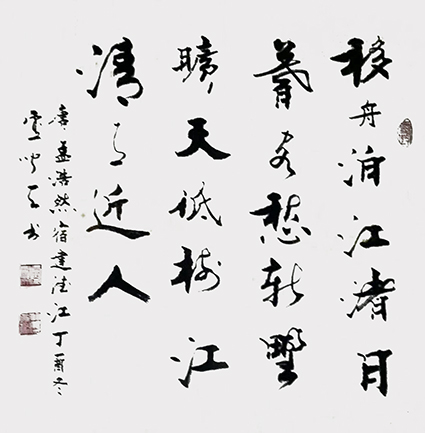 移舟泊江渚日
暮客愁新野
曠天低樹江
清月近人
唐孟浩然宿建德江丁酉冬
书